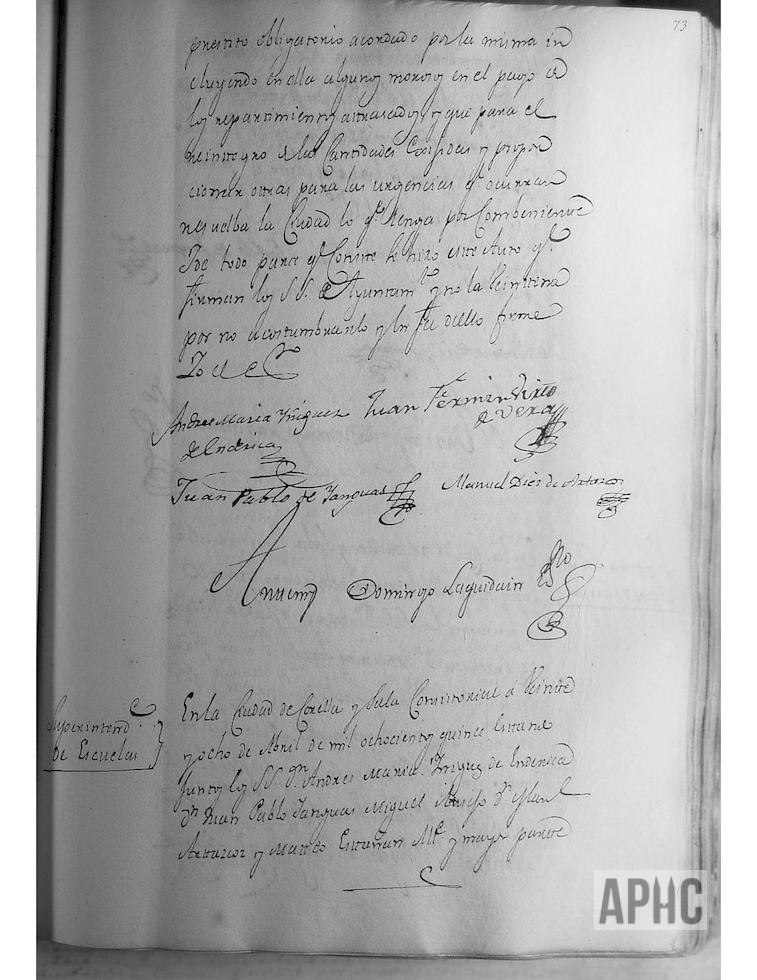 73
prestito obligatorio acordado por la misma in
cluyendo en ella algunos morosos en el pago de
los repartimientos attrasados, y que para el
reintegro de las Cantidades Exsividas y propor
cionar ottras para las urgencias qe. ocurran
resuelba la Ciudad lo qe. tenga por Combeniente
Y de todo para qe Conste se hizo este Auto qe.
firman los SS. de Ayuntamto. y no la Veintena
por no acostumbrarlo y en fee de ello firme
Yo el Esno
Andres Maria Yñiguez Juan Fermin Virto
de Vera
Juan Pablo de Yanguas Manuel Dios de
Antemi Domingo Laquidain Esno
Superintend.e
de Escuelas
En la Ciudad de Corella y Sala Consistorial a Veinte
y ocho de Abril de mil ochocientos quince Estando
Juntos los SS. Dn. Andres Maria Yñiguez de
Dn Juan Pablo Yanguas Miguel
y Matteo y mayor parte
APHC